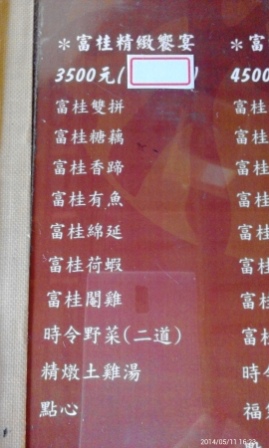 *富桂精緻饗宴
3500元( )
富桂雙拼
富桂糖藕
富桂香蹄
富桂有魚
富桂綿延
富桂荷蝦
富桂閣雞
時令野菜(二道)
精燉土雞湯
點心
*富
4500
富桂
富桂
富桂
富桂
富桂
富桂
富
富桂
時令
福
2014/05/11 16:23